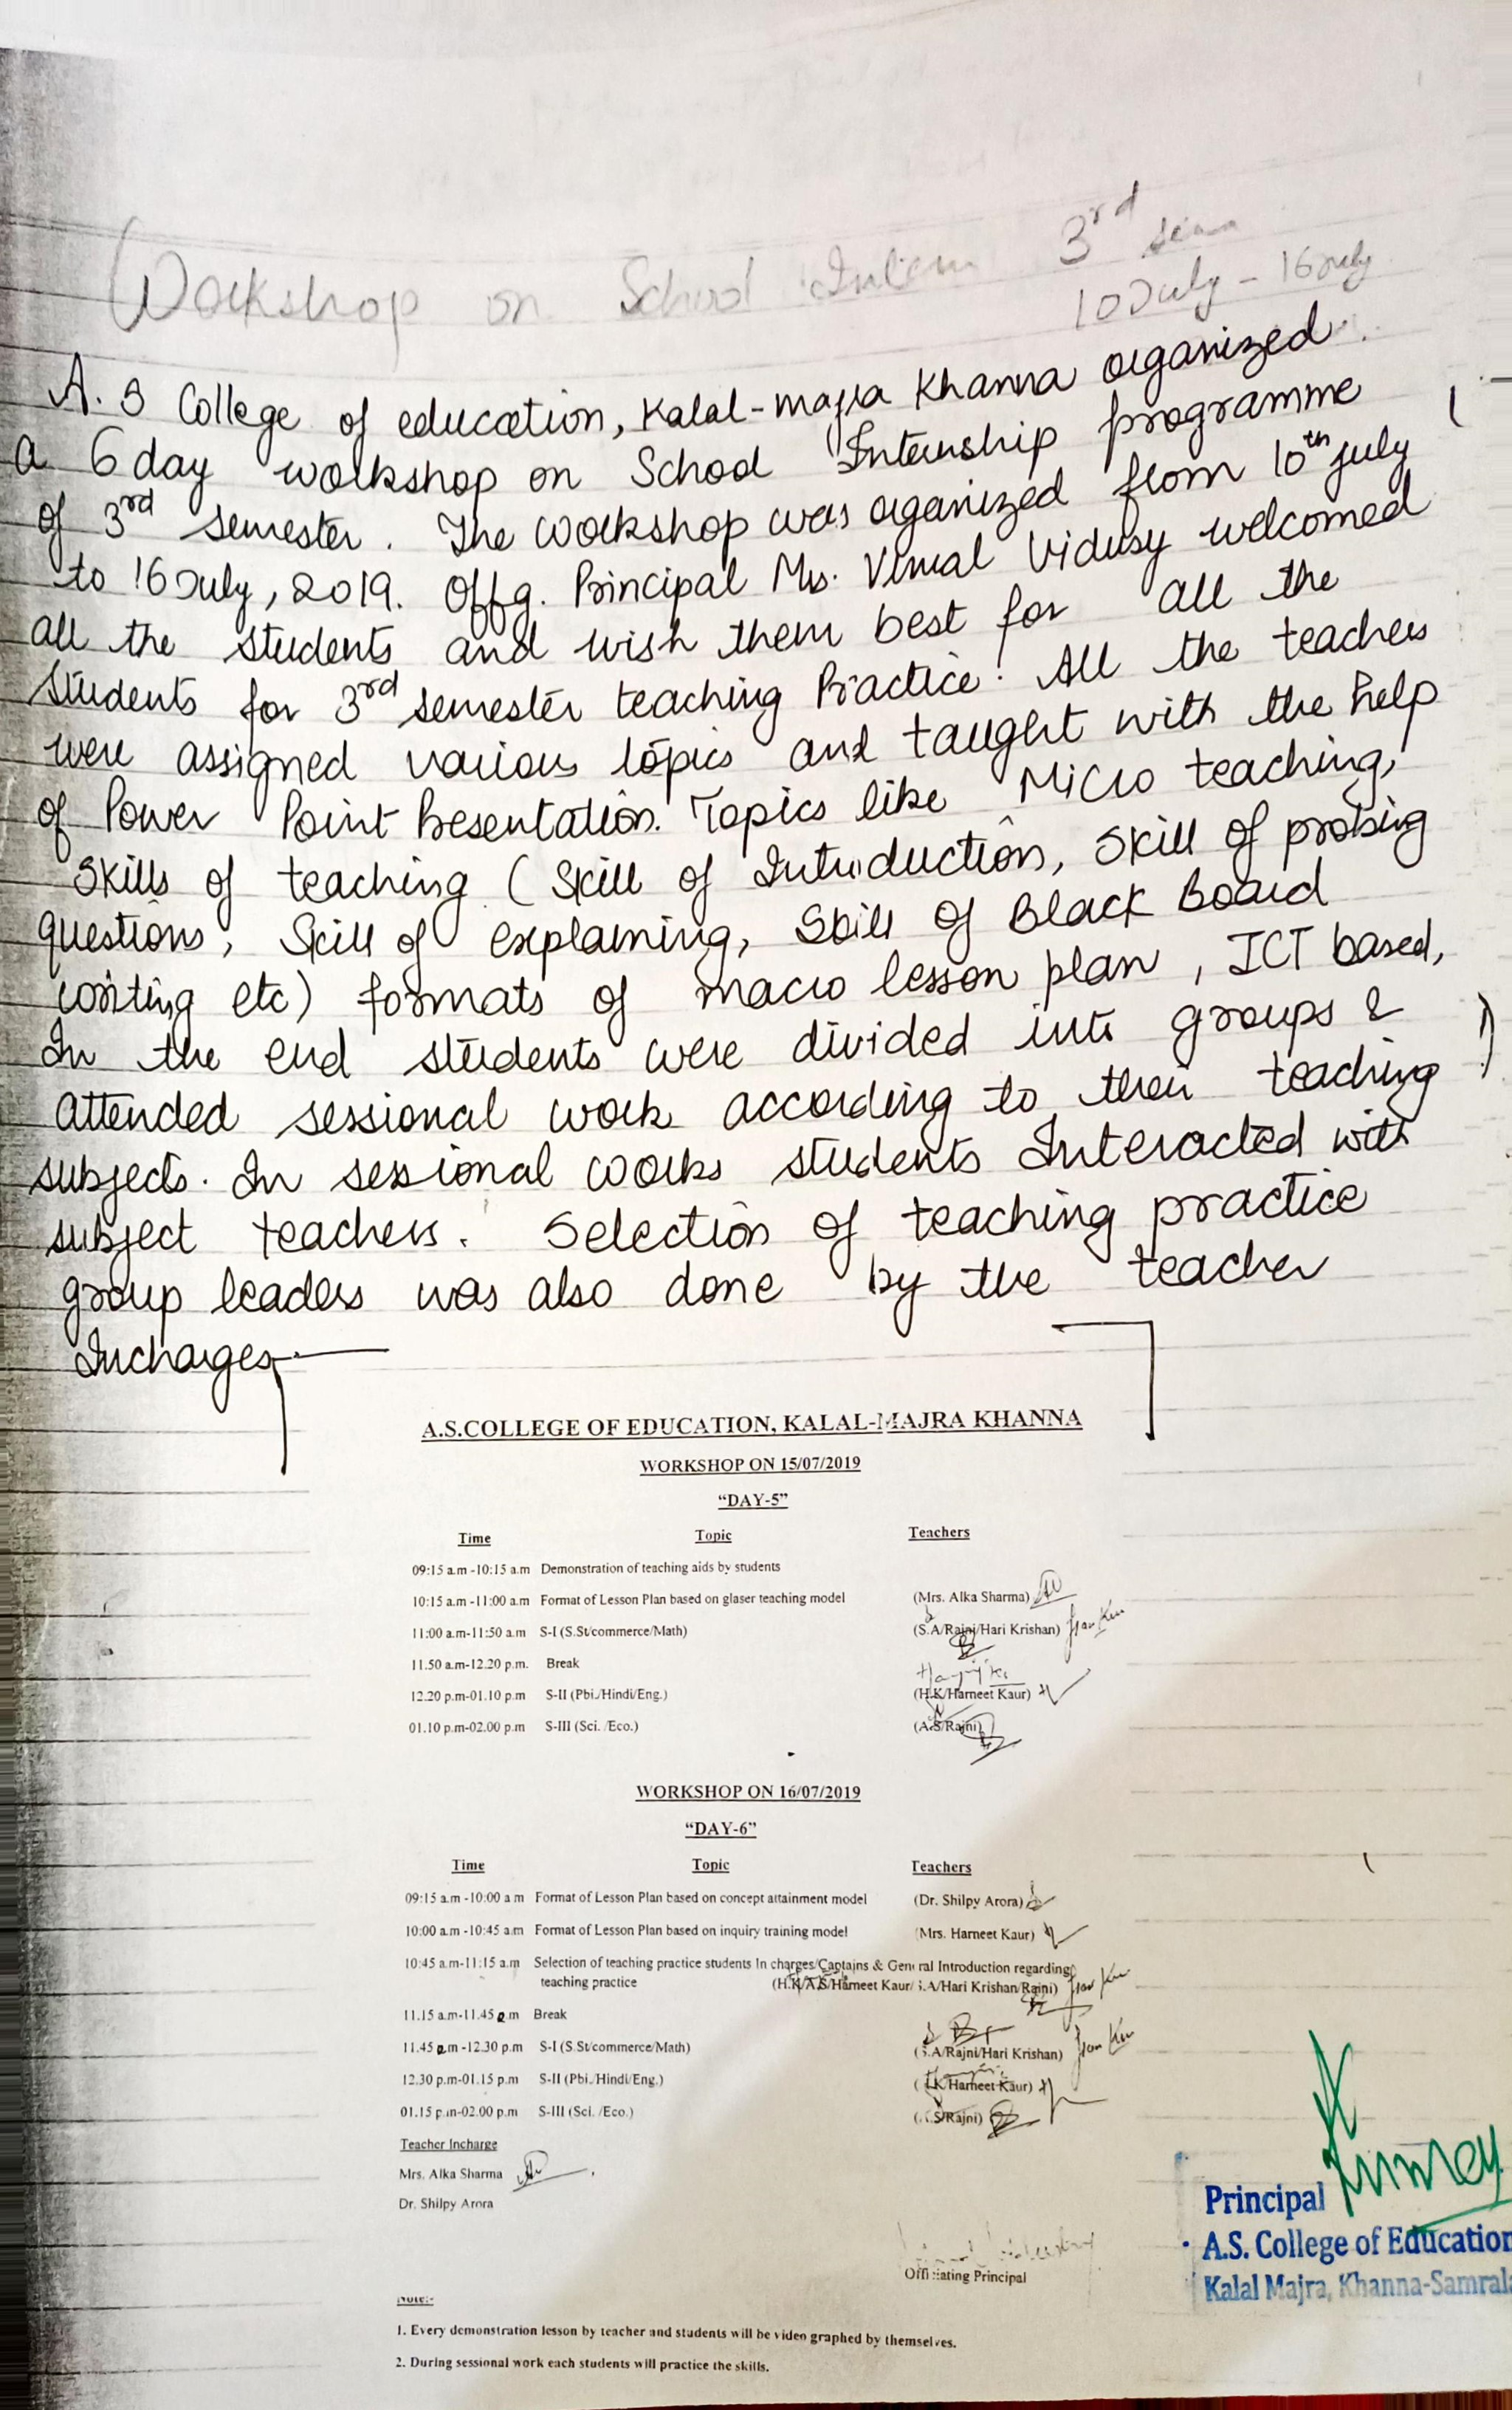 Workshop on School Intern 3rd sem
10 July - 16 July
A. S College of education, Kalal-majra Khanna organized
a 6 day workshop on School Internship programme
of 3rd semester. The workshop was oganized from 10th july
to 16 July, 2019. Offg. Principal Ms. Vimal Vidusy welcomed
all the students and wish them best for all the
students for 3rd semester teaching Practice. All the teachers
were assigned various topics and taught with the help
of Power Point Presentation. Topics like Micro teaching,
Skills of teaching (Skill of Introduction, Skill of probing
questions, Skill of explaining, Skill of Black Board
writing etc) formats of macro lesson plan, ICT based,
In the end students were divided into groups &
attended sessional work according to their teaching
subjects. In sessional works students Interacted with
subject teachers. Selection of teaching practice
group leaders was also done by the teacher
Incharges
A.S.COLLEGE OF EDUCATION, KALAL-MAJRA KHANNA
WORKSHOP ON 15/07/2019
“DAY-5”
Time Topic Teachers
09:15 a.m -10:15 a.m Demonstration of teaching aids by students
10:15 a.m -11:00 a.m Format of Lesson Plan based on glaser teaching model (Mrs. Alka Sharma)
11:00 a.m-11:50 a.m S-I (S.St/commerce/Math) (S.A/Rajni/Hari Krishan)
11.50 a.m-12.20 p.m. Break
12.20 p.m-01.10 p.m S-II (Pbi./Hindi/Eng.) (H.K/Harneet Kaur)
01.10 p.m-02.00 p.m S-III (Sci. /Eco.) (A.S/Rajni)
WORKSHOP ON 16/07/2019
“DAY-6”
Time Topic Teachers
09:15 a.m -10:00 a.m Format of Lesson Plan based on concept attainment model (Dr. Shilpy Arora)
10:00 a.m -10:45 a.m Format of Lesson Plan based on inquiry training model (Mrs. Harneet Kaur)
10:45 a.m-11:15 a.m Selection of teaching practice students In charges/Captains & General Introduction regarding
teaching practice (H.K/A.S/Harneet Kaur/ S.A/Hari Krishan/Rajni)
11.15 a.m-11.45 a.m Break
11.45 a.m -12.30 p.m S-I (S.St/commerce/Math) (S.A/Rajni/Hari Krishan)
12.30 p.m-01.15 p.m S-II (Pbi./Hindi/Eng.) (H.K/Harneet Kaur)
01.15 p.m-02.00 p.m S-III (Sci. /Eco.) (A.S/Rajni)
Teacher Incharge
Mrs. Alka Sharma
Dr. Shilpy Arora
Officiating Principal
Principal
A.S. College of Education
Kalal Majra, Khanna-Samrala
Note:-
1. Every demonstration lesson by teacher and students will be video graphed by themselves.
2. During sessional work each students will practice the skills.